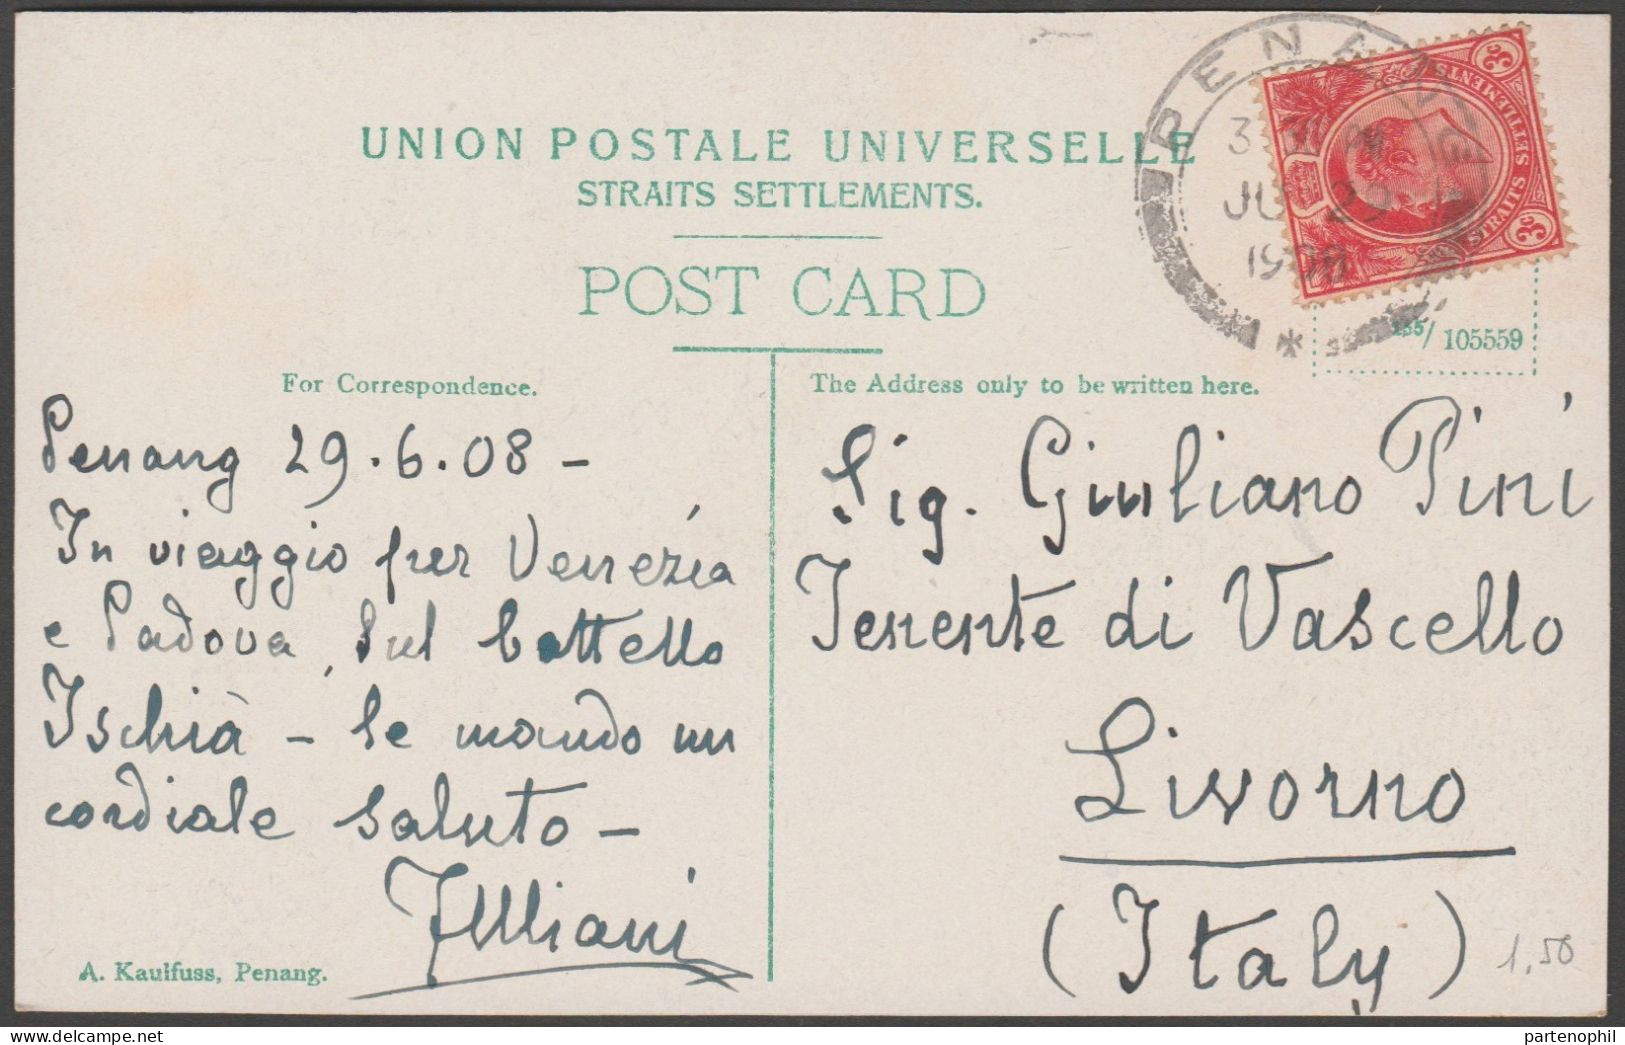 UNION POSTALE UNIVERSELLE
STRAITS SETTLEMENTS.
POST CARD
PENANG
JU 29
1908
STRAITS SETTLEMENTS
3c
3c
/ 105559
For Correspondence.
The Address only to be written here.
Penang 29.6.08 -
In viaggio per Venezia
e Padova, sul battello
Ischià - le mando un
cordiale saluto -
A. Kaulfuss, Penang.
Sig. Giuliano Pini
Tenente di Vascello
Livorno
(Italy)
1,50
partenophil
www.delcampe.net